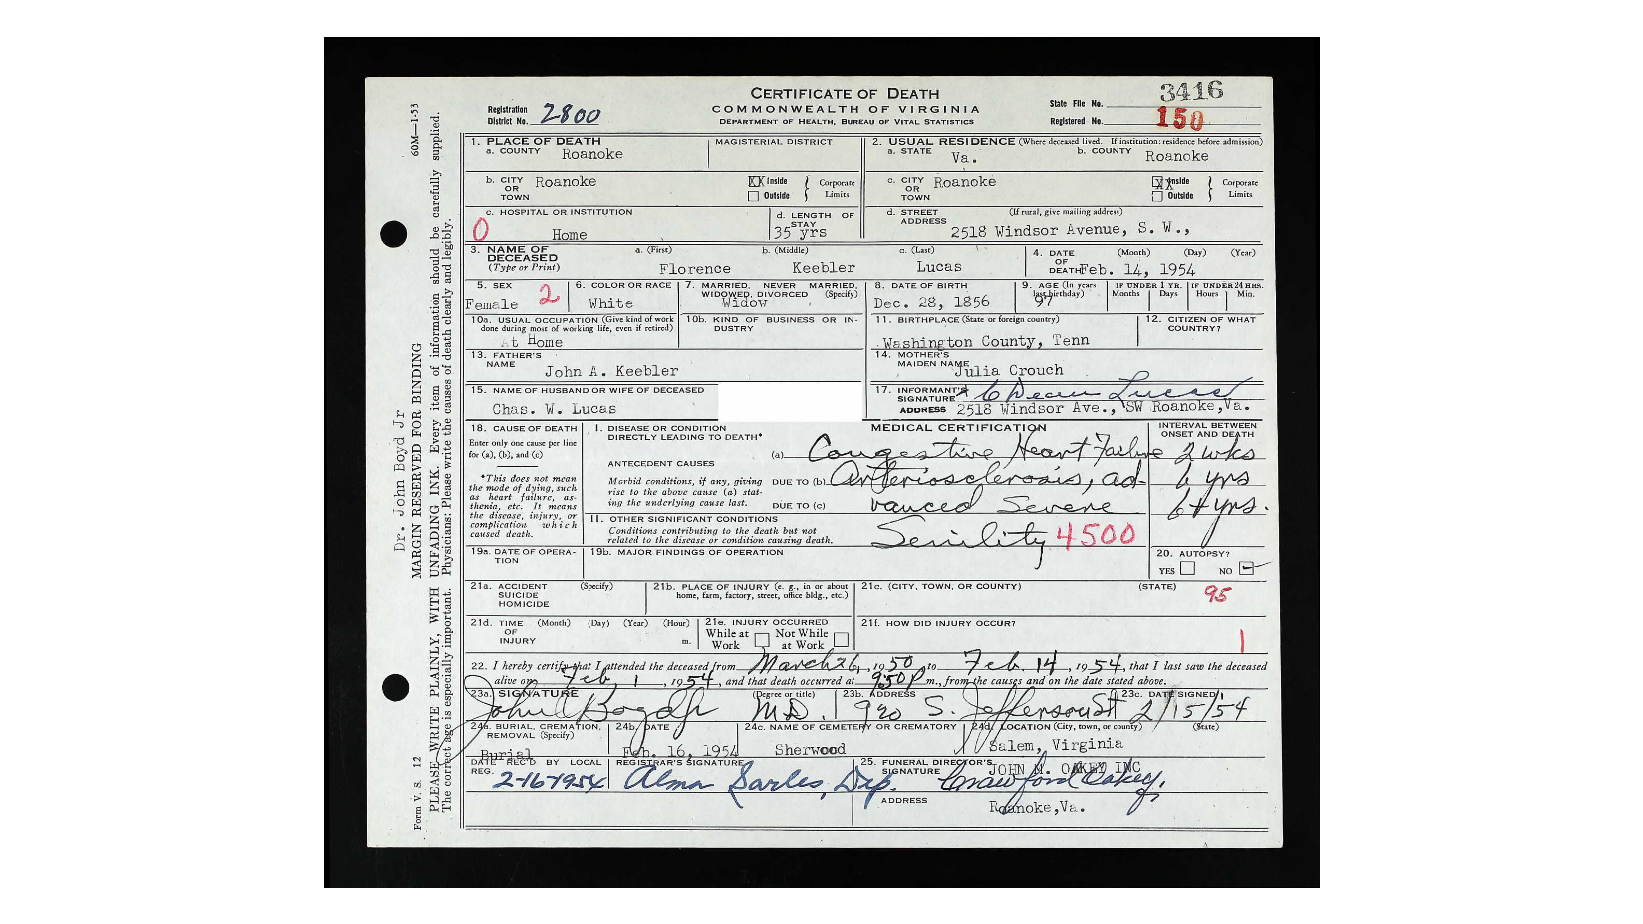 CERTIFICATE OF DEATH
COMMONWEALTH OF VIRGINIA
DEPARTMENT OF HEALTH, BUREAU OF VITAL STATISTICS
Registration District No. 2800
State File No. 3416
Registered No. 150
60M—1-53
Dr. John Boyd Jr
MARGIN RESERVED FOR BINDING
PLEASE WRITE PLAINLY, WITH UNFADING INK. Every item of information should be carefully supplied.
The correct age is especially important. Physicians: Please write the causes of death clearly and legibly.
Form V. S. 12
1. PLACE OF DEATH
a. COUNTY Roanoke
MAGISTERIAL DISTRICT
2. USUAL RESIDENCE (Where deceased lived. If institution: residence before admission)
a. STATE Va.
b. COUNTY Roanoke
b. CITY OR TOWN Roanoke
XX Inside
Outside
Corporate Limits
c. CITY OR TOWN Roanoke
XX Inside
Outside
Corporate Limits
c. HOSPITAL OR INSTITUTION
0 Home
d. LENGTH OF STAY
35 yrs
d. STREET ADDRESS (If rural, give mailing address)
2518 Windsor Avenue, S. W.,
3. NAME OF DECEASED (Type or Print)
a. (First) b. (Middle) c. (Last)
Florence Keebler Lucas
4. DATE OF DEATH (Month) (Day) (Year)
Feb. 14, 1954
5. SEX
Female 2
6. COLOR OR RACE
White
7. MARRIED, NEVER MARRIED, WIDOWED, DIVORCED (Specify)
Widow
8. DATE OF BIRTH
Dec. 28, 1856
9. AGE (In years last birthday)
97
IF UNDER 1 YR. Months Days
IF UNDER 24 HRS. Hours Min.
10a. USUAL OCCUPATION (Give kind of work done during most of working life, even if retired)
At Home
10b. KIND OF BUSINESS OR INDUSTRY
11. BIRTHPLACE (State or foreign country)
Washington County, Tenn
12. CITIZEN OF WHAT COUNTRY?
13. FATHER'S NAME
John A. Keebler
14. MOTHER'S MAIDEN NAME
Julia Crouch
15. NAME OF HUSBAND OR WIFE OF DECEASED
Chas. W. Lucas
17. INFORMANT'S SIGNATURE Dean Lucas
ADDRESS 2518 Windsor Ave., SW Roanoke,Va.
18. CAUSE OF DEATH
Enter only one cause per line for (a), (b), and (c)
*This does not mean the mode of dying, such as heart failure, asthenia, etc. It means the disease, injury, or complication which caused death.
MEDICAL CERTIFICATION
INTERVAL BETWEEN ONSET AND DEATH
I. DISEASE OR CONDITION DIRECTLY LEADING TO DEATH*
(a) Congestive Heart Failure 2 wks
ANTECEDENT CAUSES
Morbid conditions, if any, giving rise to the above cause (a) stating the underlying cause last.
DUE TO (b) Arteriosclerosis, ad- 6 yrs
DUE TO (c) vanced Severe 6+ yrs.
II. OTHER SIGNIFICANT CONDITIONS
Conditions contributing to the death but not related to the disease or condition causing death.
Senility 4500
19a. DATE OF OPERATION
19b. MAJOR FINDINGS OF OPERATION
20. AUTOPSY?
YES NO
21a. ACCIDENT SUICIDE HOMICIDE (Specify)
21b. PLACE OF INJURY (e. g., in or about home, farm, factory, street, office bldg., etc.)
21c. (CITY, TOWN, OR COUNTY) (STATE)
95
21d. TIME OF INJURY (Month) (Day) (Year) (Hour) m.
21e. INJURY OCCURRED
While at Work Not While at Work
21f. HOW DID INJURY OCCUR?
1
22. I hereby certify that I attended the deceased from March 26, 1950 to Feb. 14, 1954, that I last saw the deceased
alive on Feb. 1, 1954, and that death occurred at 950 P m., from the causes and on the date stated above.
23a. SIGNATURE (Degree or title)
John Boyd Jr M.D.
23b. ADDRESS
920 S. Jefferson St
23c. DATE SIGNED
2/15/54
24a. BURIAL, CREMATION, REMOVAL (Specify)
Burial
24b. DATE
Feb. 16, 1954
24c. NAME OF CEMETERY OR CREMATORY
Sherwood
24d. LOCATION (City, town, or county) (State)
Salem, Virginia
DATE REC'D BY LOCAL REG.
2-16-1954
REGISTRAR'S SIGNATURE
Alma Sarles, Dep.
25. FUNERAL DIRECTOR'S SIGNATURE
JOHN M. OAKEY INC
Crawford Oakey,
ADDRESS
Roanoke,Va.